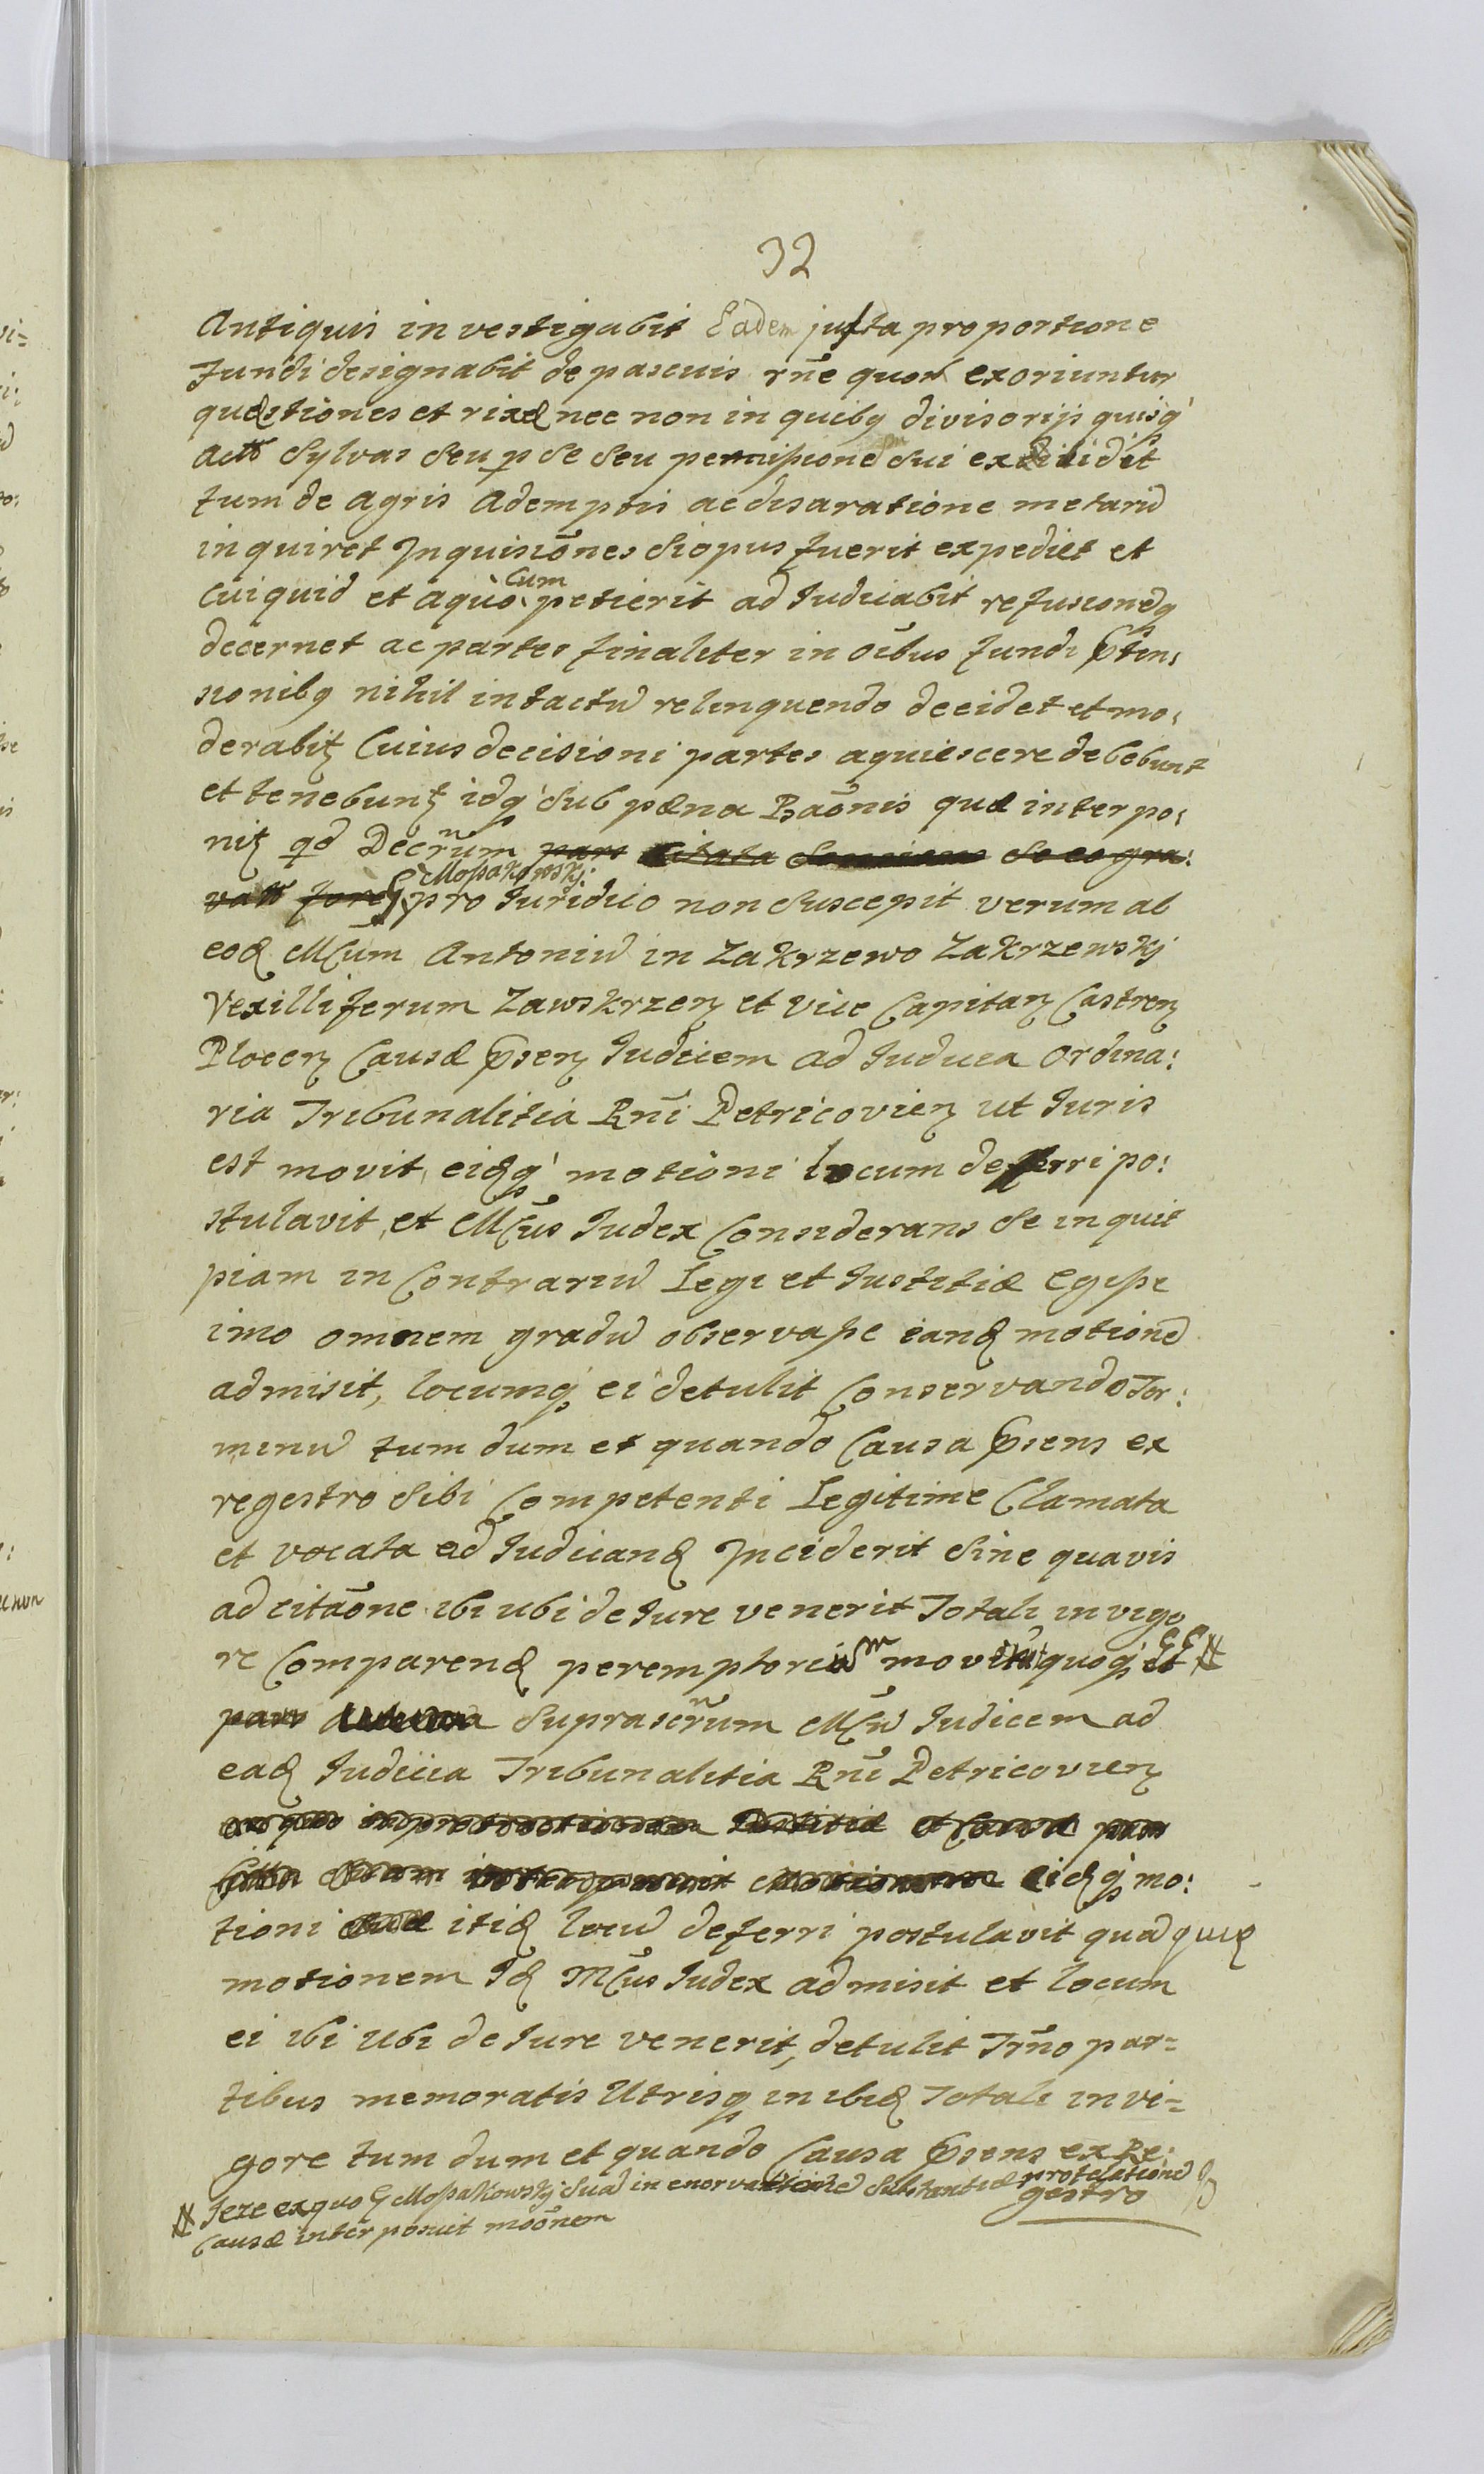 32
Antiquis investigabit Eadem juxta proportione
Fundi designabit de pascuis rñe quor exoriuntur
quæstiones et rixæ nec non in quibq divisorijs quisq
actt Sylvas seu p se seu permissione sui
tum de agris ademptis ac disaratione metarū
inquiret Inquisiōnes si opus fuerit expediet et
Cuiquid et aquo cum petierit adIudicabit refusionēq
decernet ac partes finaliter in oībus fundi ꝑten:
sionibq nihil intactū relinquendo decidet et mo:
derabitꝫ Cuius decisioni partes aquiescere debebunt
et tenebuntꝫ idq sub pæna Baōnis quæ interpo:
nitꝫ qd Decrūm pars Citata se eo gra:
vatt fore G Mossakowskj: pro Iuridico non suscepit verum ab
eod MCum Antoniū in Zakrzewo Zakrzewskj
Vexilliferum Zawskrzen et Vice Capitan Castren
Plocen Causæ ꝑsen Iudicem ad Iudicia Ordina:
ria Tribunalitia Rñi Petricovien ut Iuris
est movit, eidq motioni locum deferri po:
stulavit, et MCūs Iudex Considerans se in quit
piam in Contrariū Legi et Iustitiæ egisse
imo omnem gradū observasse eand motionē
admisit, locumq ei detulit Conservando Ter:
minū tum dum et quando Causa ꝑsens ex
regestro sibi Competenti Legitime Clamata
et vocata ad Iudicand Inciderit sine quavis
adcitaōne ibi ubi de Iure venerit Totali in vigo
re Comparend peremptoriū movit quoq et #
pars suprascrūm MCū Iudicem ad
ead Iudicia Tribunalitia Rñi Petricovien
eidq mo:
tioni itid locū deferri postulavit quā quid
motionem Id MCūs Iudex admisit et locum
ei ibi ubi de Iure venerit, detulit Trño par=
tibus memoratis Utrisq in ibid Totali in vi=
gore tum dum et quando Causa ꝑsens ex Re:
gestro
# Ieze ex quo G Mossakowskj suā in enervationē substantiæ protelationē
Causæ interposuit moōnem